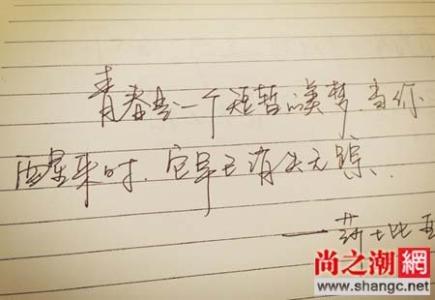 青春是一个短暂的美梦，当你
醒来时，它早已消失无踪
——莎士比亚
尚之潮網
www.shangc.net